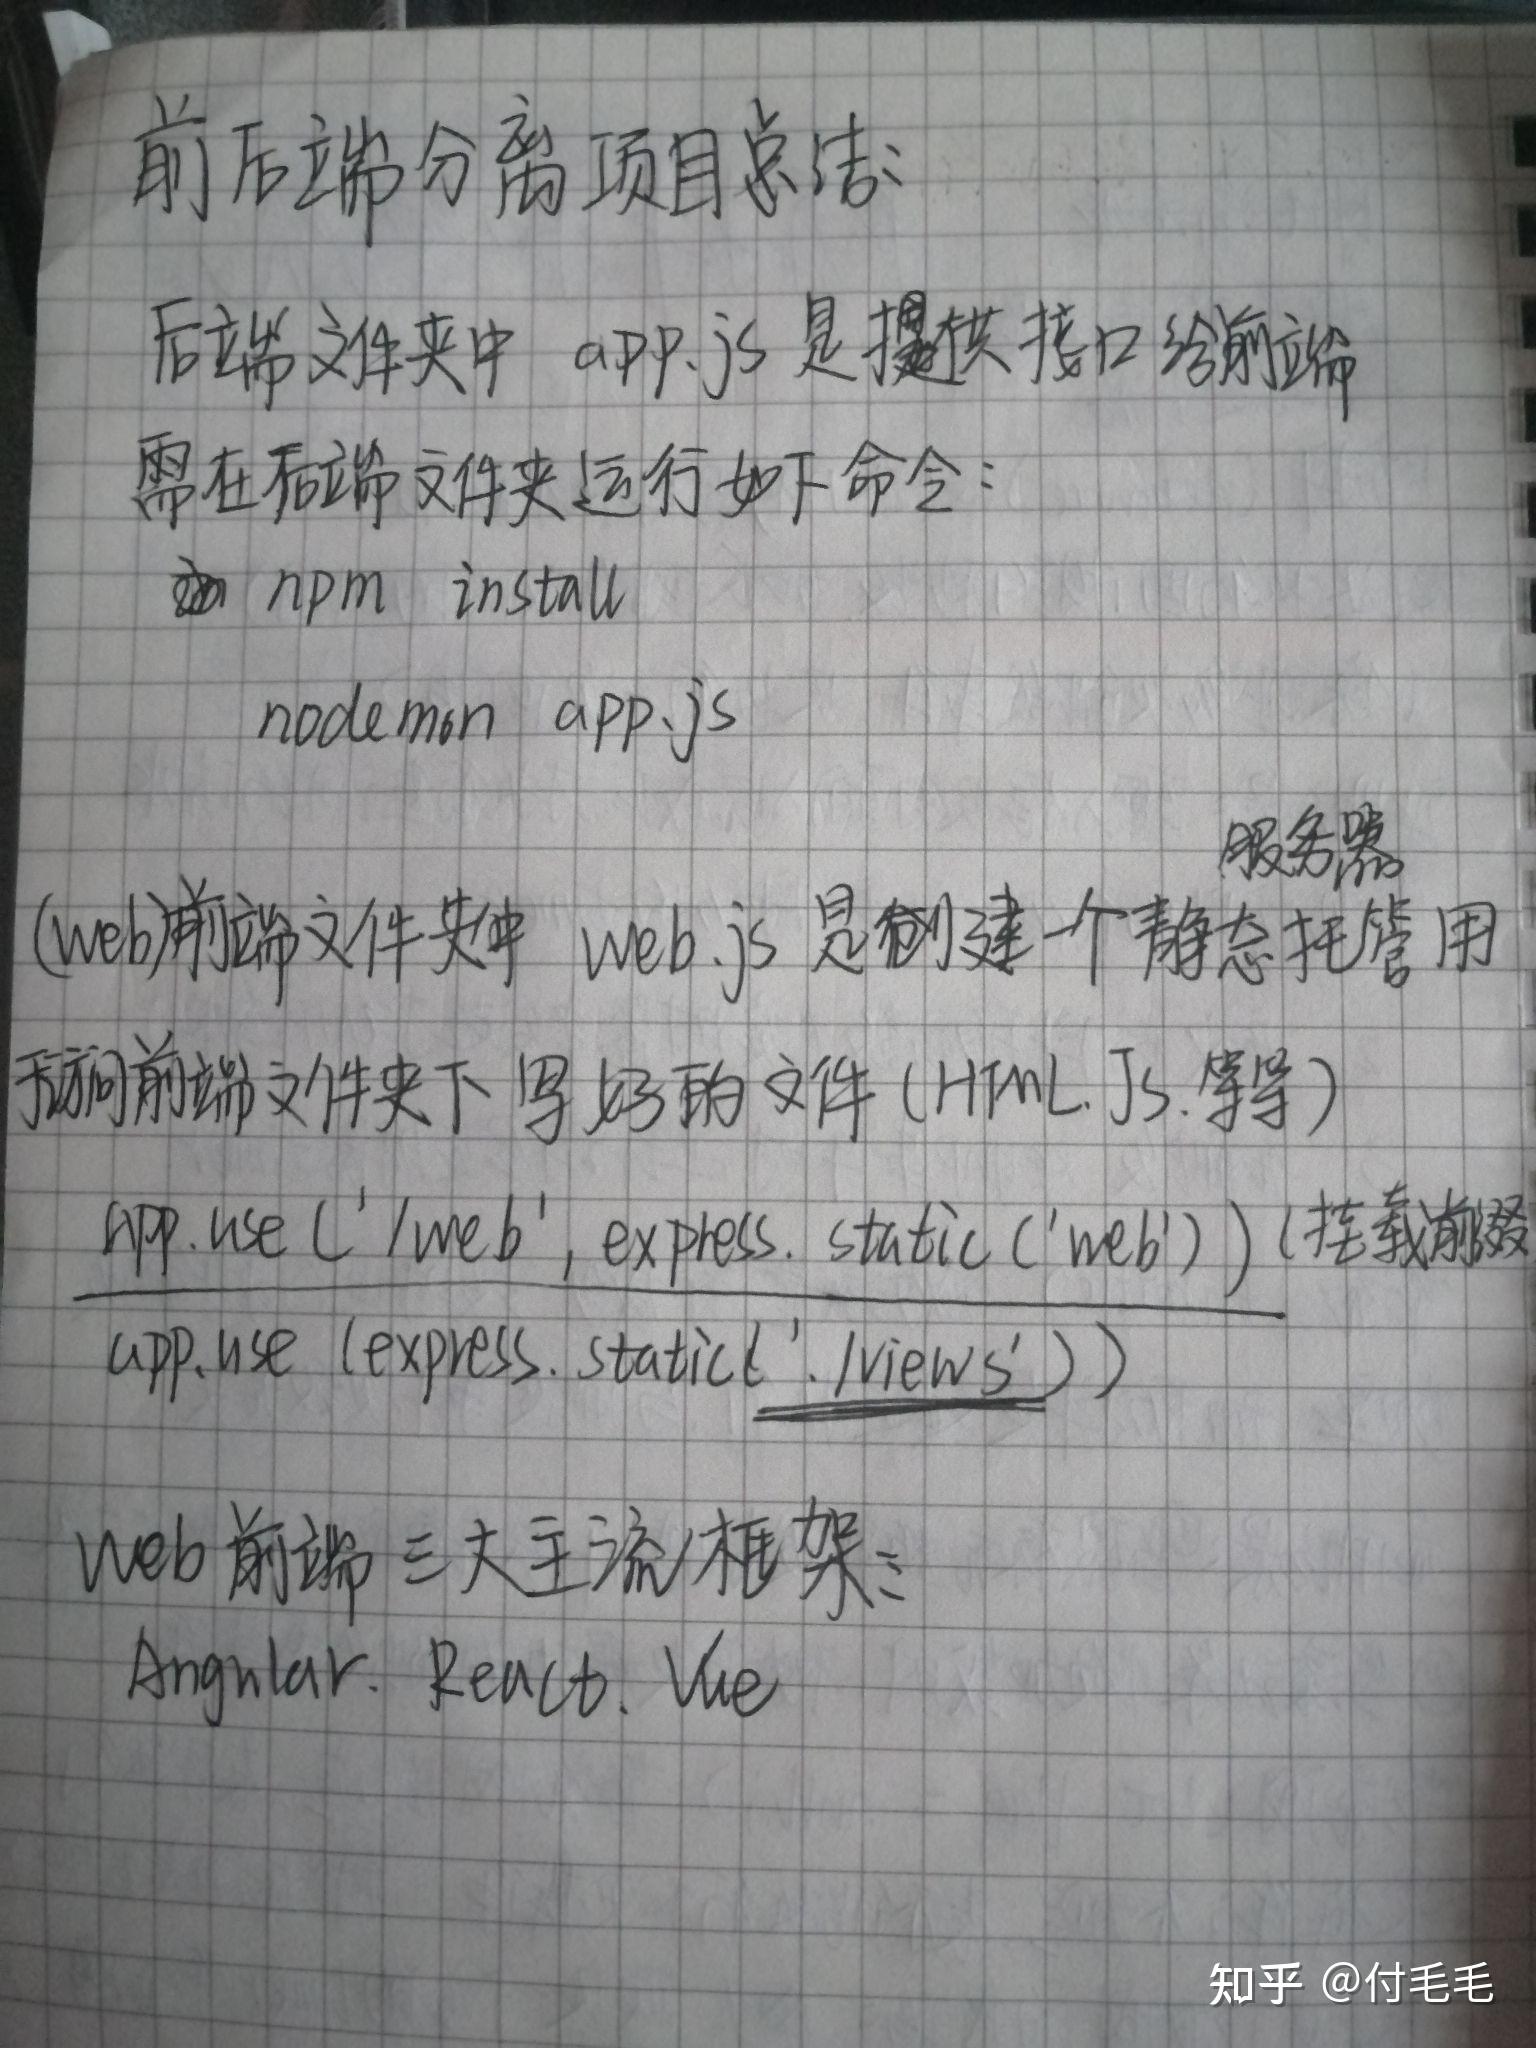 前后端分离项目总结:
后端文件夹中 app.js 是提供接口给前端
需在后端文件夹运行如下命令:
npm install
nodemon app.js
服务器
(web)前端文件夹中 web.js 是创建一个静态托管用
于访问前端文件夹下写好的文件(HTML.Js.等等)
app.use('/web', express.static('web')) (挂载前缀
app.use(express.static('./views'))
Web前端三大主流框架:
Angular. React. Vue
知乎 @付毛毛